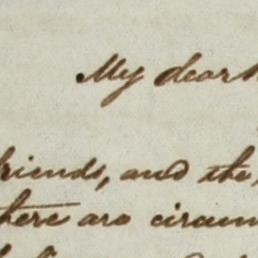 My dear
friends, and the
there are circum